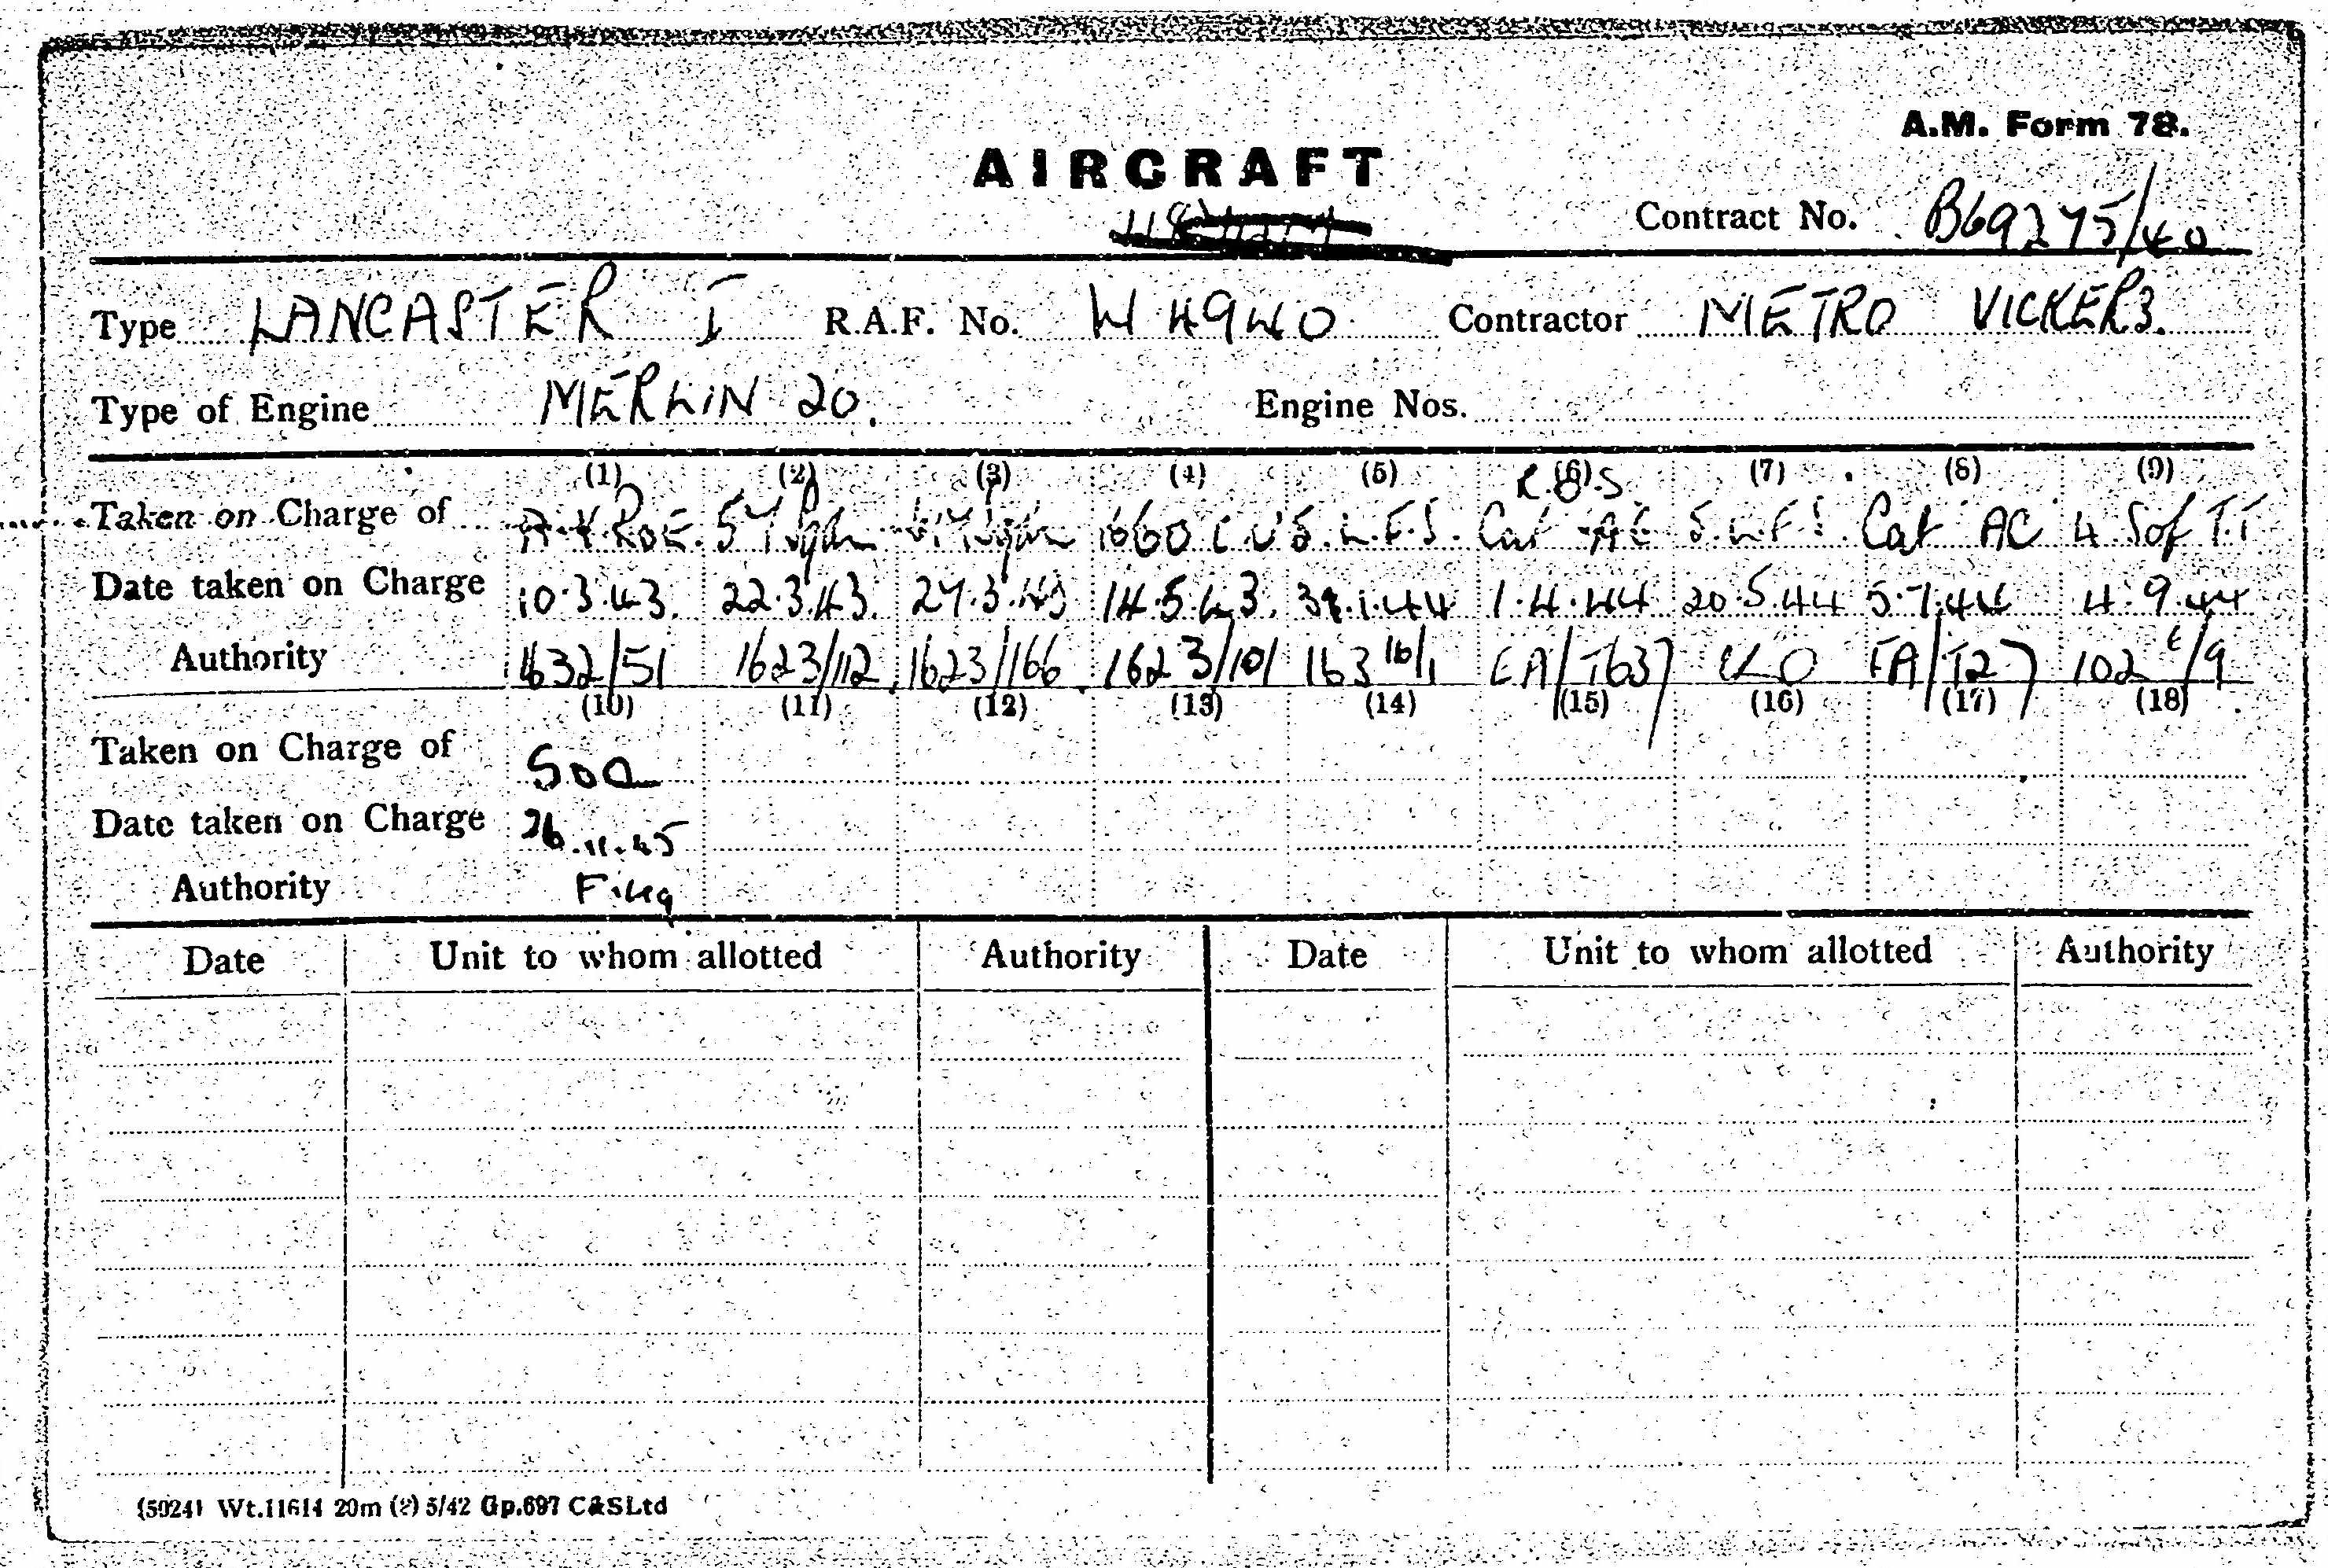 A.M. Form 78.
AIRCRAFT
Contract No. B69275/40
Type LANCASTER I R.A.F. No. W4940 Contractor METRO VICKERS.
Type of Engine MERLIN 20. Engine Nos.
(1) (2) (3) (4) (5) (6) (7) (8) (9)
R.O.S
Taken on Charge of A.V.ROE. 57 Sqdn 1660 C.U 5.L.F.S. Cat AC 5.L.F.S. Cat AC 4 S of T.T
Date taken on Charge 10.3.43. 22.3.43. 27.3.43 14.5.43. 1.44 1.4.44 20.5.44 5.7.44 4.9.44
Authority 1632/51 1623/112 1623/166 1623/101 163 16/1 EA/T637 EA/T27 102 E/9
(10) (11) (12) (13) (14) (15) (16) (17) (18)
Taken on Charge of SOC
Date taken on Charge 26.11.45
Authority
Date Unit to whom allotted Authority Date Unit to whom allotted Authority
(50241 Wt.11614 20m (2) 5/42 Gp.697 C&SLtd